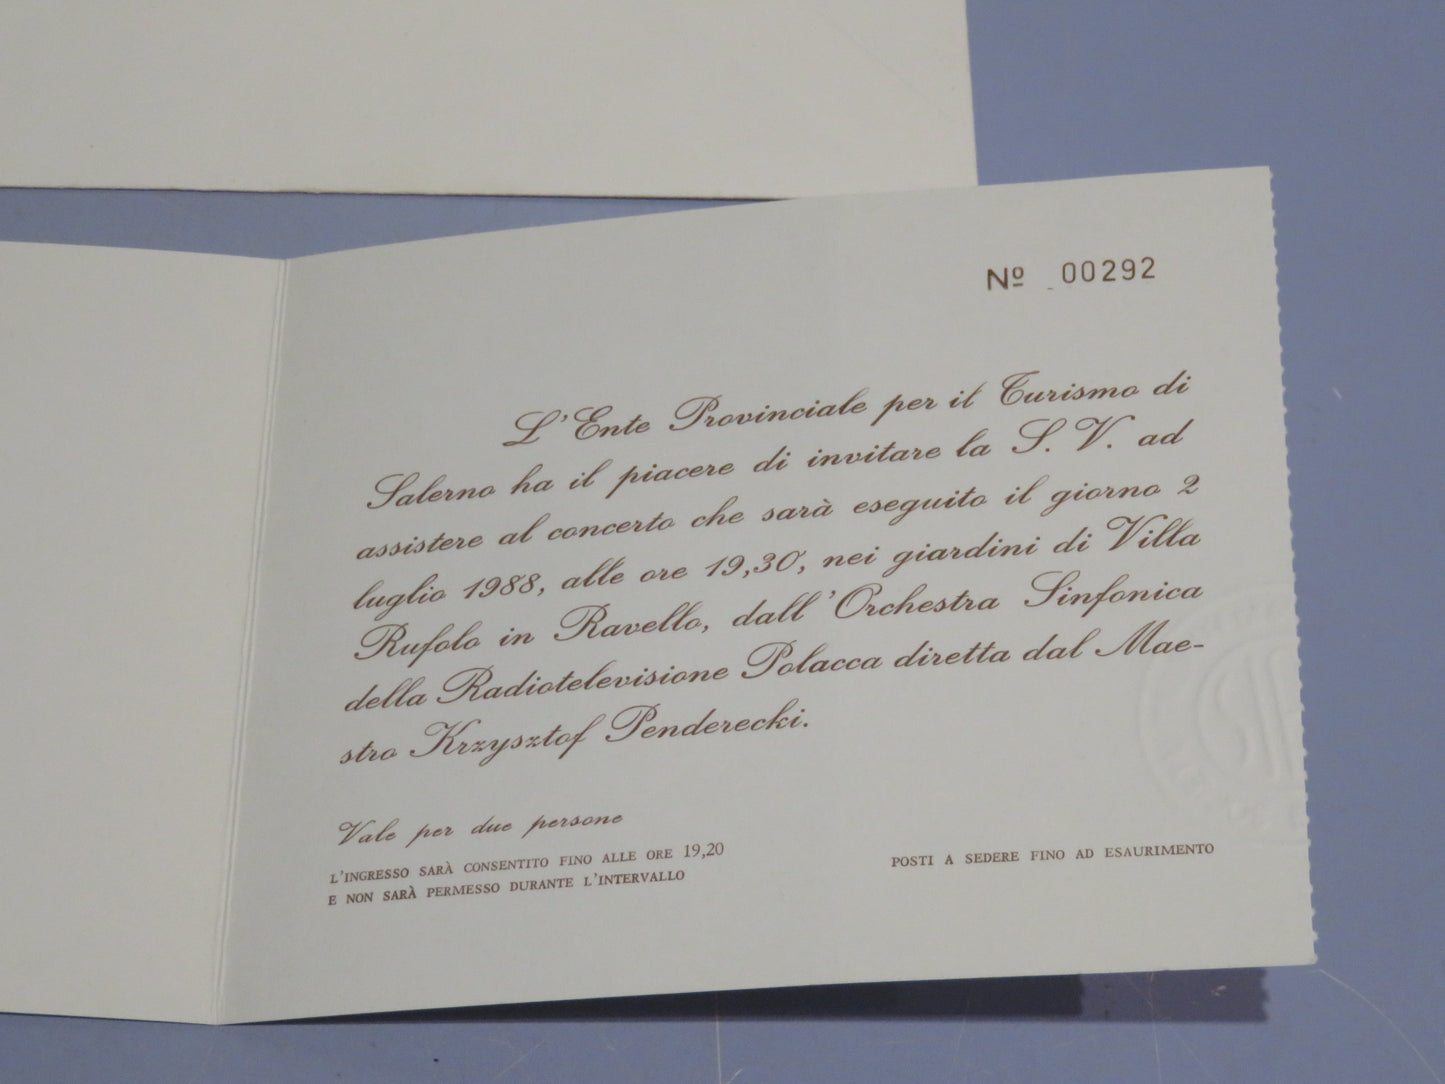 Nº 00292
L'Ente Provinciale per il Turismo di
Salerno ha il piacere di invitare la S. V. ad
assistere al concerto che sarà eseguito il giorno 2
luglio 1988, alle ore 19,30, nei giardini di Villa
Rufolo in Ravello, dall'Orchestra Sinfonica
della Radiotelevisione Polacca diretta dal Mae-
stro Krzysztof Penderecki.
Vale per due persone
L'INGRESSO SARÀ CONSENTITO FINO ALLE ORE 19,20
E NON SARÀ PERMESSO DURANTE L'INTERVALLO
POSTI A SEDERE FINO AD ESAURIMENTO